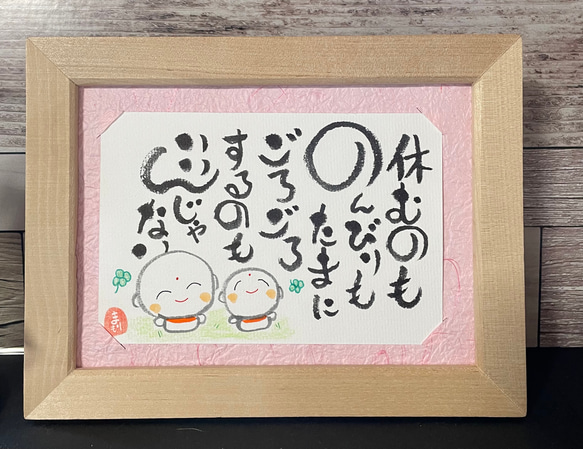 休むのも
のんびりも
たまに
ごろごろ
するのも
いいんじゃない